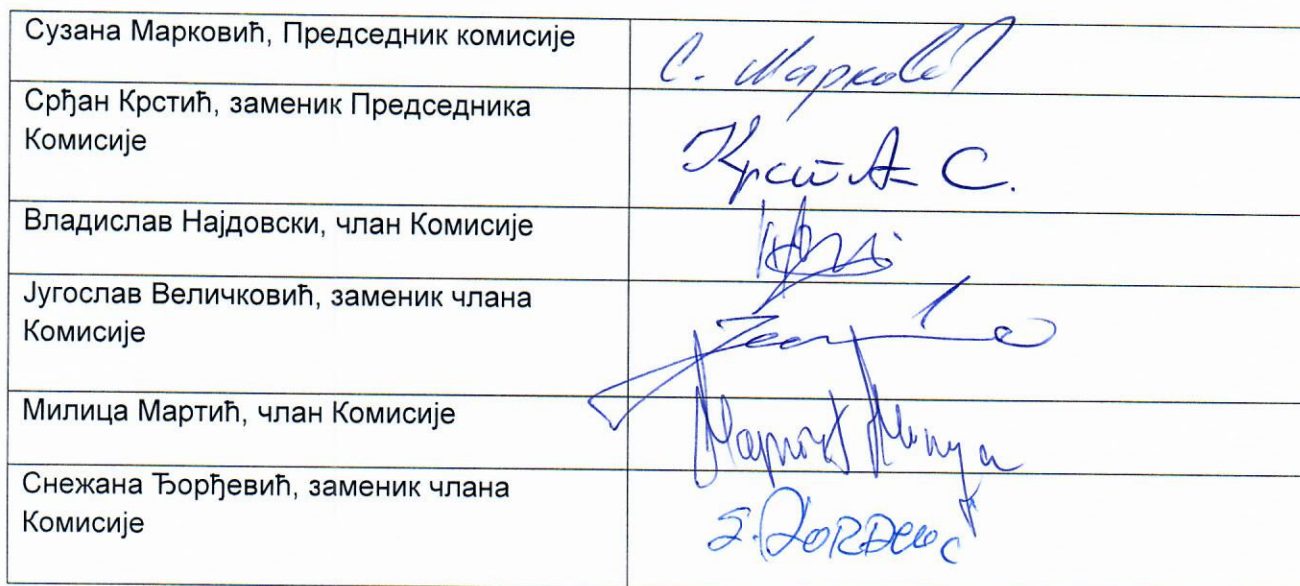 Сузана Марковић, Председник комисије
С. Марковић
Срђан Крстић, заменик Председника
Комисије
Крстић С.
Владислав Најдовски, члан Комисије
Југослав Величковић, заменик члана
Комисије
Милица Мартић, члан Комисије
Мартић Милица
Снежана Ђорђевић, заменик члана
Комисије